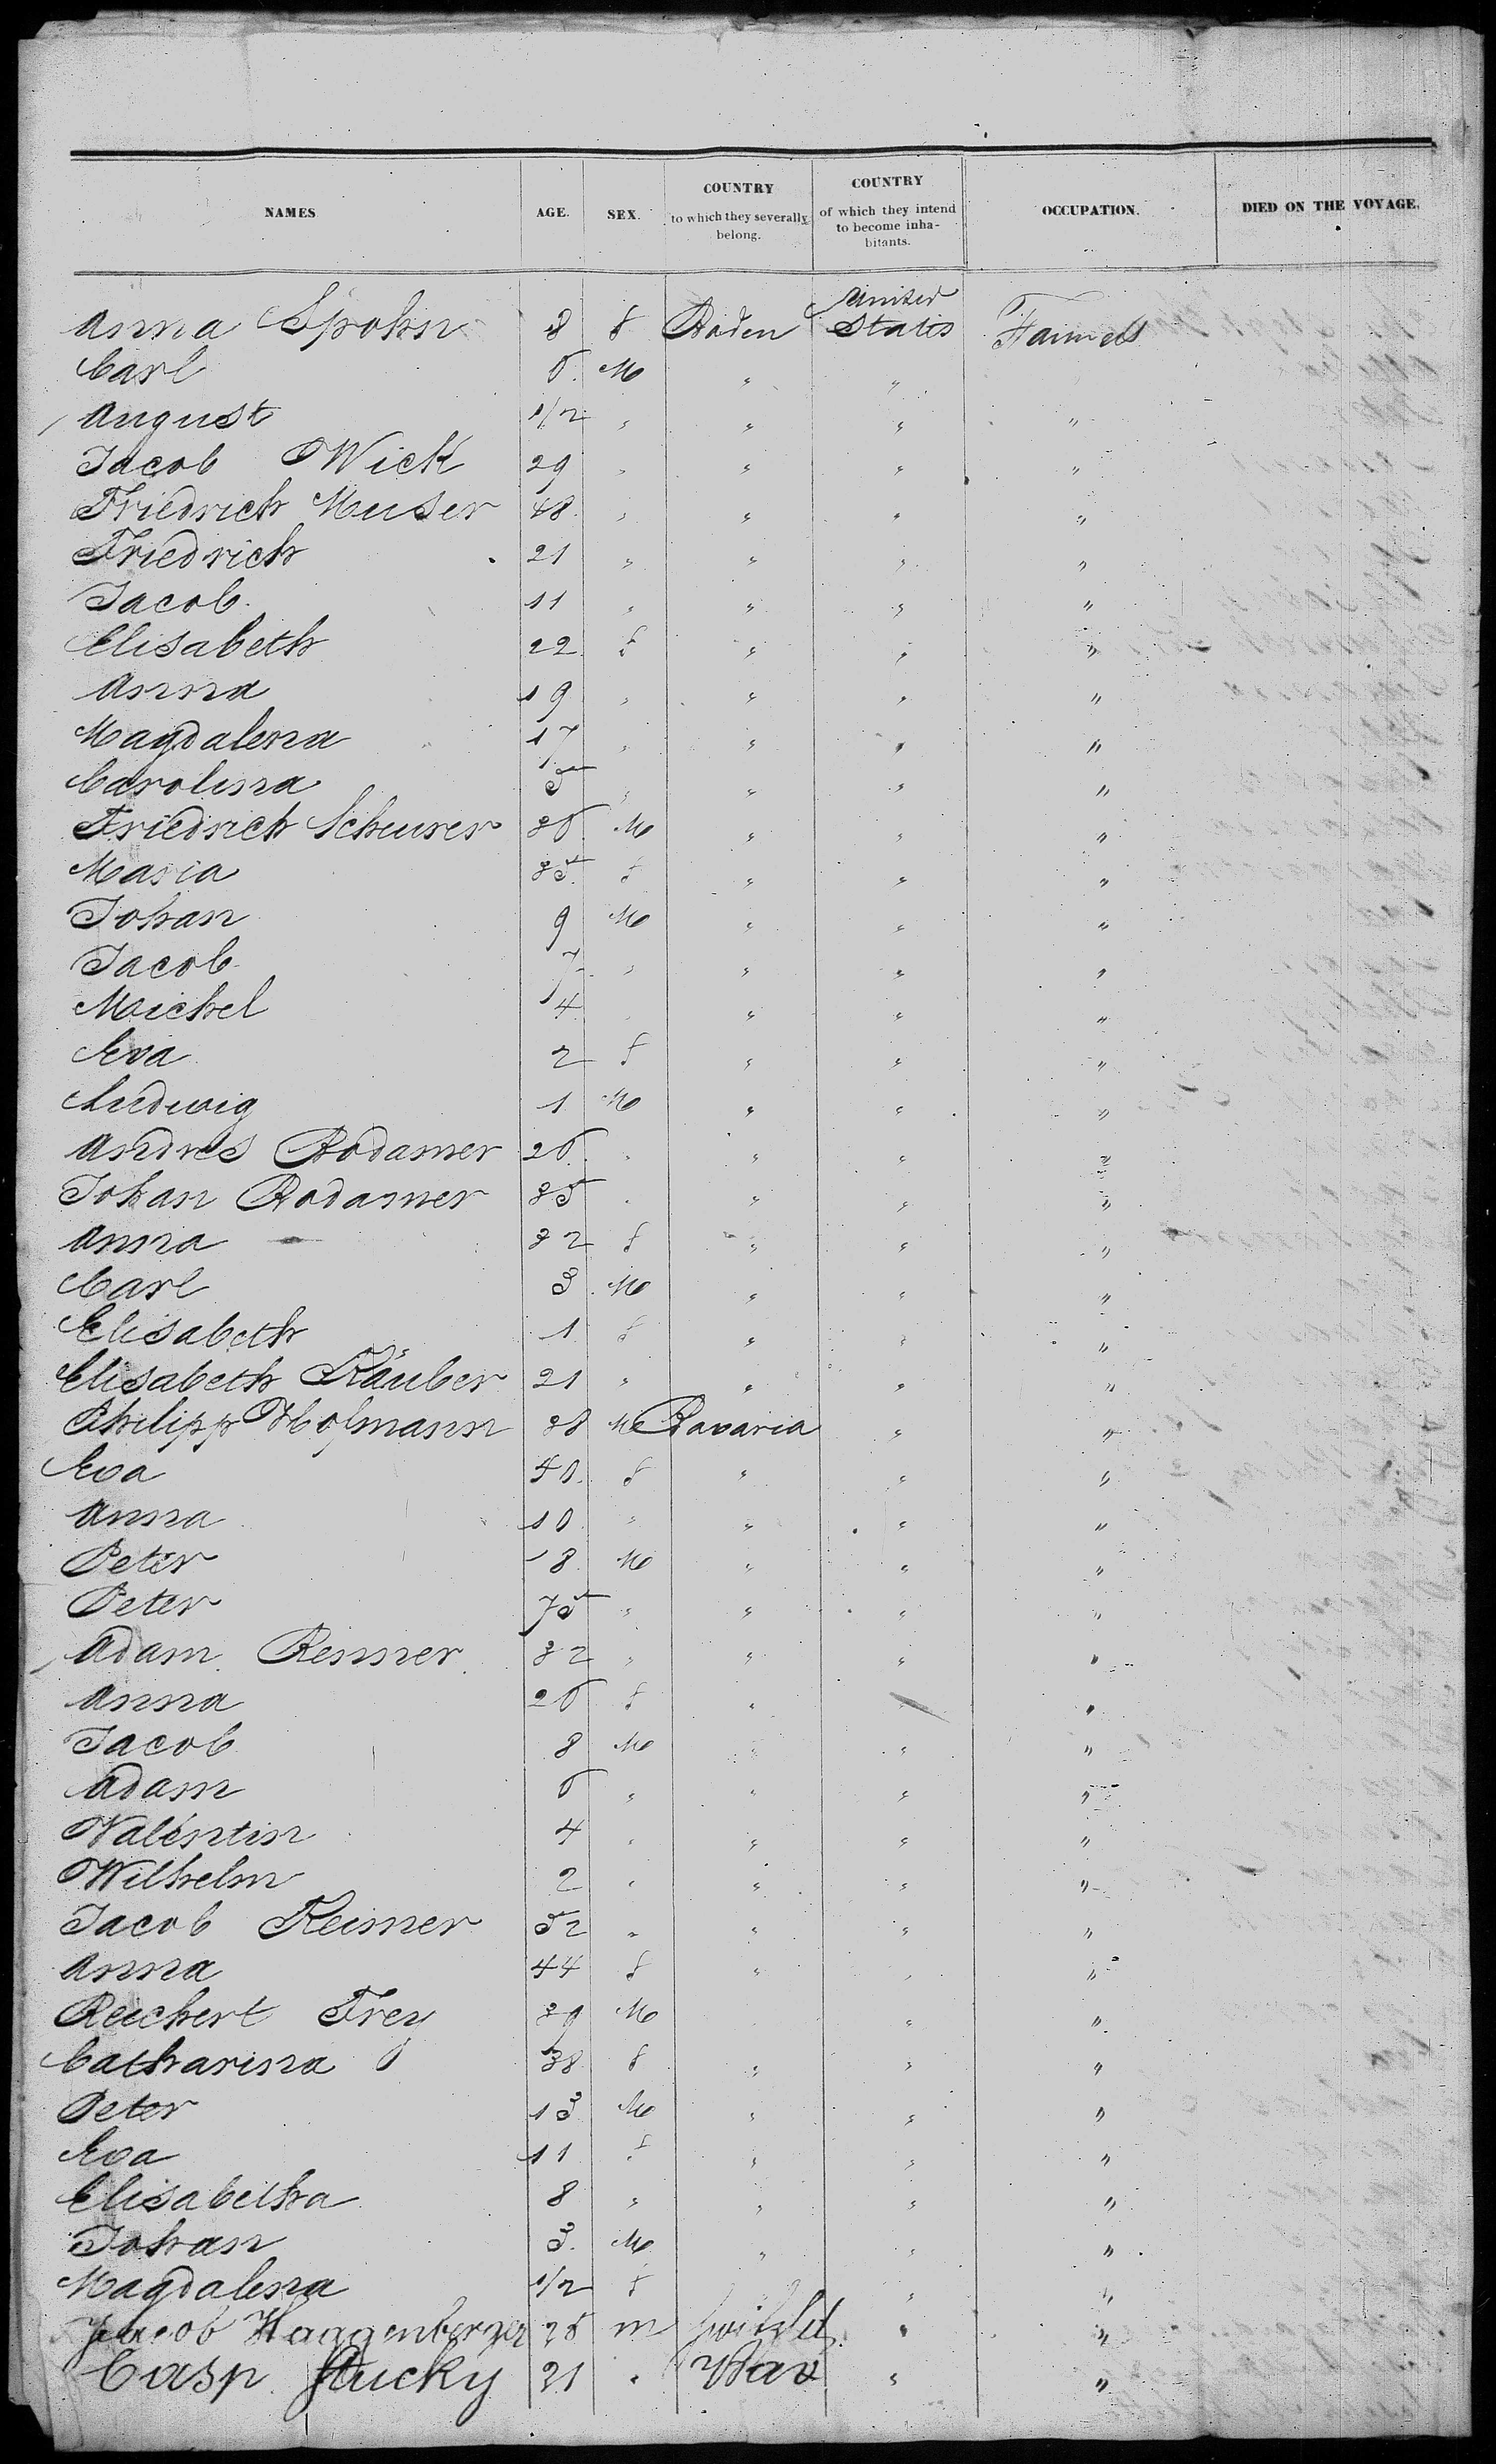 NAMES AGE. SEX. COUNTRY to which they severally belong. COUNTRY of which they intend to become inha-bitants. OCCUPATION. DIED ON THE VOYAGE.
Anna Spohn 8 f Baden United States Farmers
Carl 6. M " "
August 1/2 " " " "
Jacob Wick 29 " " " "
Friedrich Muser 48. " " " "
Friedrich 21 " " " "
Jacob. 11 " " " "
Elisabeth 22 f " " "
Anna 19 " " " "
Magdalena 17 " " " "
Carolina 5 " " " "
Friedrich Scheurer 36. M " " "
Maria 35. f " " "
Johan 9 M " " "
Jacob 7 " " " "
Michel 4 " " "
Eva 2 f " " "
Ludwig 1 M " " "
Andres Rodamer 26. " " " "
Johan Rodamer 35 " " " "
Anna 32 f " " "
Carl 3 M " " "
Elisabeth 1 f " " "
Elisabeth Räuber 21 " " " "
Philipp Hofmann 38 M Bavaria " "
Eva 40. f " " "
Anna 10. " " " "
Peter 18. M " " "
Peter 75 " " " "
Adam Renner 32 " " " "
Anna 26 f " " "
Jacob 8 M " " "
Adam 6 " " " "
Valentin 4 " " " "
Wilhelm 2 " " " "
Jacob Keimer 52 " " " "
Anna 44 f " " "
Reichert Frey 39 M " "
Catharina 38 f " " "
Peter 13 M " " "
Eva 11 f " " "
Elisabetha 8 " " " "
Johan 3. M " " "
Magdalena 1/2 f " "
Jacob Haggenberger m " "
Casp. Stucky 21 " Bav " "